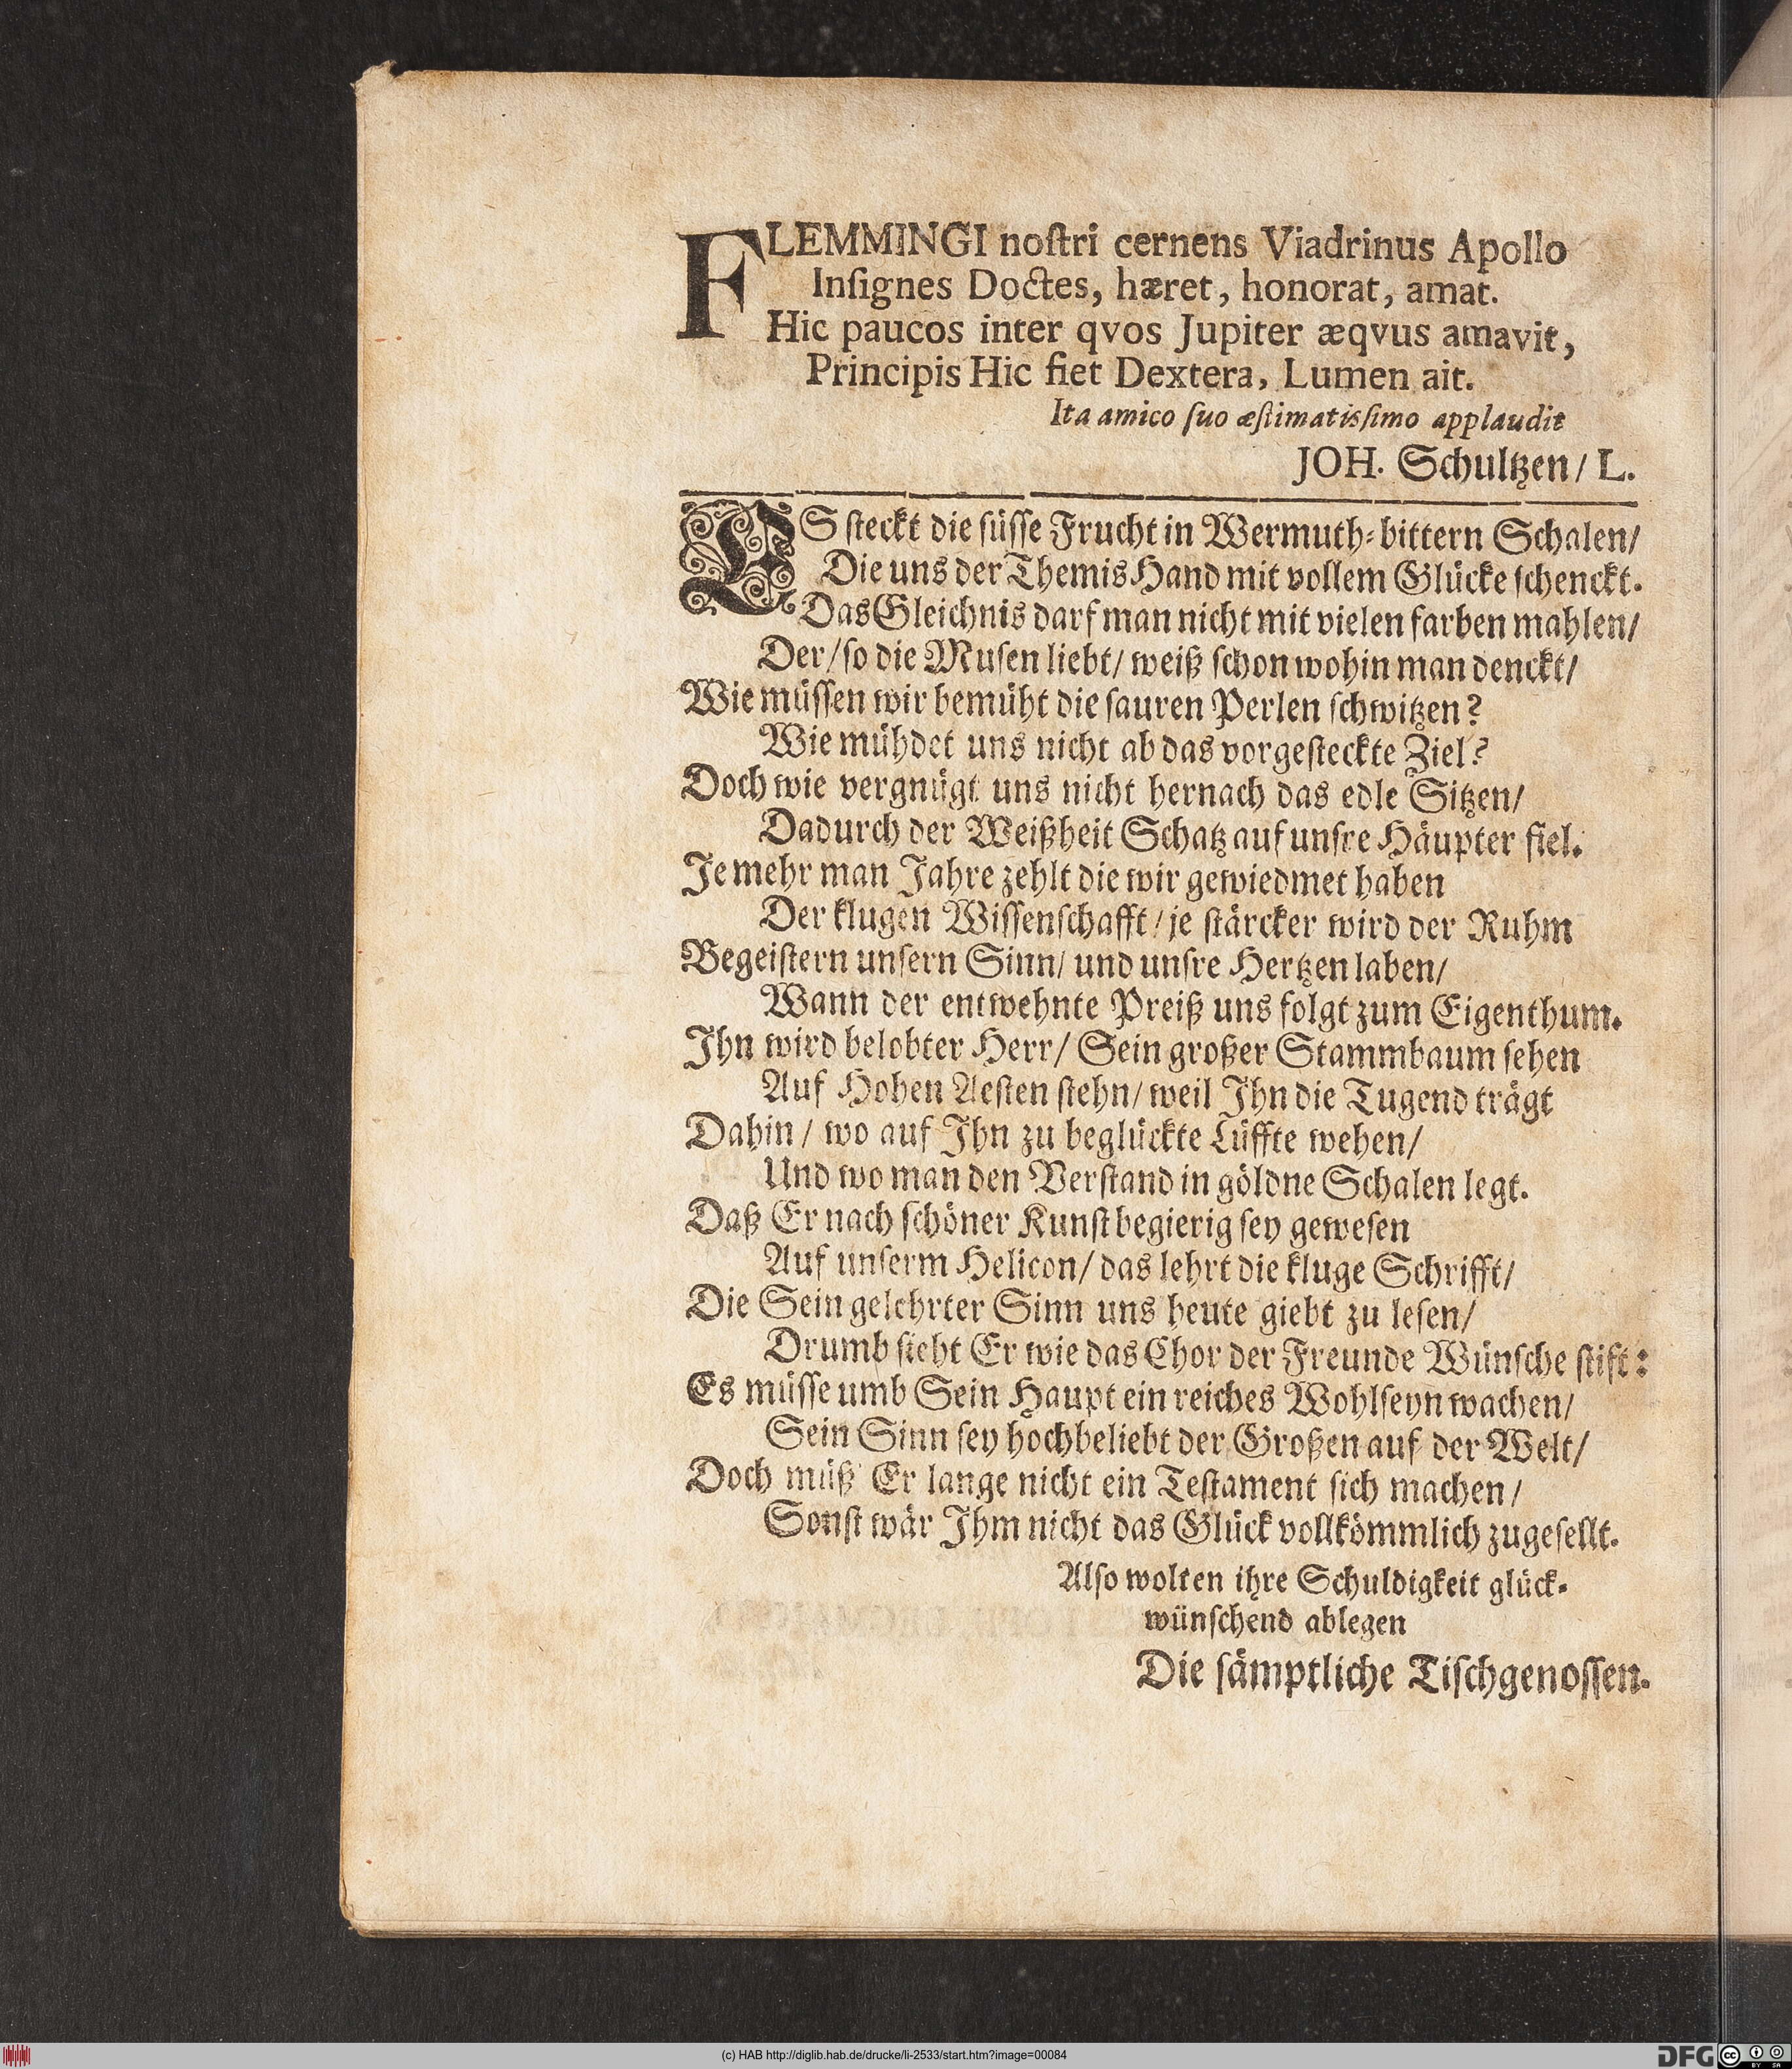 FLEMMINGI noſtri cernens Viadrinus Apollo
Inſignes Doctes, hæret, honorat, amat.
Hic paucos inter qvos Jupiter æqvus amavit,
Principis Hic fiet Dextera, Lumen ait.
Ita amico ſuo æſtimatisſimo applaudit
JOH. Schultzen/ L.
ES ſteckt die ſüſſe Frucht in Wermuth-bittern Schalen/
Die uns der Themis Hand mit vollem Glücke ſchenckt.
Das Gleichnis darf man nicht mit vielen farben mahlen/
Der/ ſo die Muſen liebt/ weiß ſchon wohin man denckt/
Wie müſſen wir bemüht die ſauren Perlen ſchwitzen?
Wie mühdet uns nicht ab das vorgeſteckte Ziel?
Doch wie vergnügt uns nicht hernach das edle Sitzen/
Dadurch der Weißheit Schatz auf unſre Häupter fiel.
Je mehr man Jahre zehlt die wir gewiedmet haben
Der klugen Wiſſenſchafft/ je ſtärcker wird der Ruhm
Begeiſtern unſern Sinn/ und unſre Hertzen laben/
Wann der entwehnte Preiß uns folgt zum Eigenthum.
Ihn wird belobter Herr/ Sein großer Stammbaum ſehen
Auf Hohen Aeſten ſtehn/ weil Ihn die Tugend trägt
Dahin/ wo auf Ihn zu beglückte Lüffte wehen/
Und wo man den Verſtand in göldne Schalen legt.
Daß Er nach ſchöner Kunſt begierig ſey geweſen
Auf unſerm Helicon/ das lehrt die kluge Schrifft/
Die Sein gelehrter Sinn uns heute giebt zu leſen/
Drumb ſieht Er wie das Chor der Freunde Wünſche ſtift:
Es müſſe umb Sein Haupt ein reiches Wohlſeyn wachen/
Sein Sinn ſey hochbeliebt der Großen auf der Welt/
Doch müß Er lange nicht ein Teſtament ſich machen/
Sonſt wär Ihm nicht das Glück vollkömmlich zugeſellt.
Alſo wolten ihre Schuldigkeit glück-
wünſchend ablegen
Die ſämptliche Tiſchgenoſſen.
(c) HAB http://diglib.hab.de/drucke/li-2533/start.htm?image=00084
DFG cc BY SA